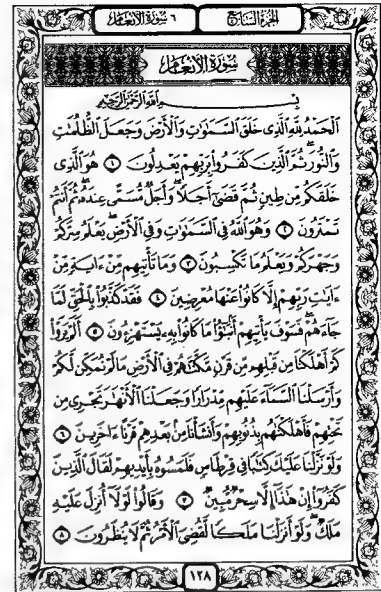 الجزء السابع
٦ سورة الأنعام
سورة الأنعام
بِسْمِ اللَّهِ الرَّحْمَٰنِ الرَّحِيمِ
الْحَمْدُ لِلَّهِ الَّذِي خَلَقَ السَّمَٰوَٰتِ وَالْأَرْضَ وَجَعَلَ الظُّلُمَٰتِ
وَالنُّورَ ثُمَّ الَّذِينَ كَفَرُوا۟ بِرَبِّهِمْ يَعْدِلُونَ ١ هُوَ الَّذِي
خَلَقَكُم مِّن طِينٍ ثُمَّ قَضَىٰٓ أَجَلًا وَأَجَلٌ مُّسَمًّى عِندَهُۥ ثُمَّ أَنتُمْ
تَمْتَرُونَ ٢ وَهُوَ اللَّهُ فِي السَّمَٰوَٰتِ وَفِي الْأَرْضِ يَعْلَمُ سِرَّكُمْ
وَجَهْرَكُمْ وَيَعْلَمُ مَا تَكْسِبُونَ ٣ وَمَا تَأْتِيهِم مِّنْ ءَايَةٍ مِّنْ
ءَايَٰتِ رَبِّهِمْ إِلَّا كَانُوا۟ عَنْهَا مُعْرِضِينَ ٤ فَقَدْ كَذَّبُوا۟ بِالْحَقِّ لَمَّا
جَآءَهُمْ فَسَوْفَ يَأْتِيهِمْ أَنۢبَٰٓؤُا۟ مَا كَانُوا۟ بِهِۦ يَسْتَهْزِءُونَ ٥ أَلَمْ يَرَوْا۟
كَمْ أَهْلَكْنَا مِن قَبْلِهِم مِّن قَرْنٍ مَّكَّنَّٰهُمْ فِي الْأَرْضِ مَا لَمْ نُمَكِّن لَّكُمْ
وَأَرْسَلْنَا السَّمَآءَ عَلَيْهِم مِّدْرَارًا وَجَعَلْنَا الْأَنْهَٰرَ تَجْرِي مِن
تَحْتِهِمْ فَأَهْلَكْنَٰهُم بِذُنُوبِهِمْ وَأَنشَأْنَا مِنۢ بَعْدِهِمْ قَرْنًا ءَاخَرِينَ ٦
وَلَوْ نَزَّلْنَا عَلَيْكَ كِتَٰبًا فِي قِرْطَاسٍ فَلَمَسُوهُ بِأَيْدِيهِمْ لَقَالَ الَّذِينَ
كَفَرُوٓا۟ إِنْ هَٰذَآ إِلَّا سِحْرٌ مُّبِينٌ ٧ وَقَالُوا۟ لَوْلَآ أُنزِلَ عَلَيْهِ
مَلَكٌ وَلَوْ أَنزَلْنَا مَلَكًا لَّقُضِيَ الْأَمْرُ ثُمَّ لَا يُنظَرُونَ ٨
١٢٨